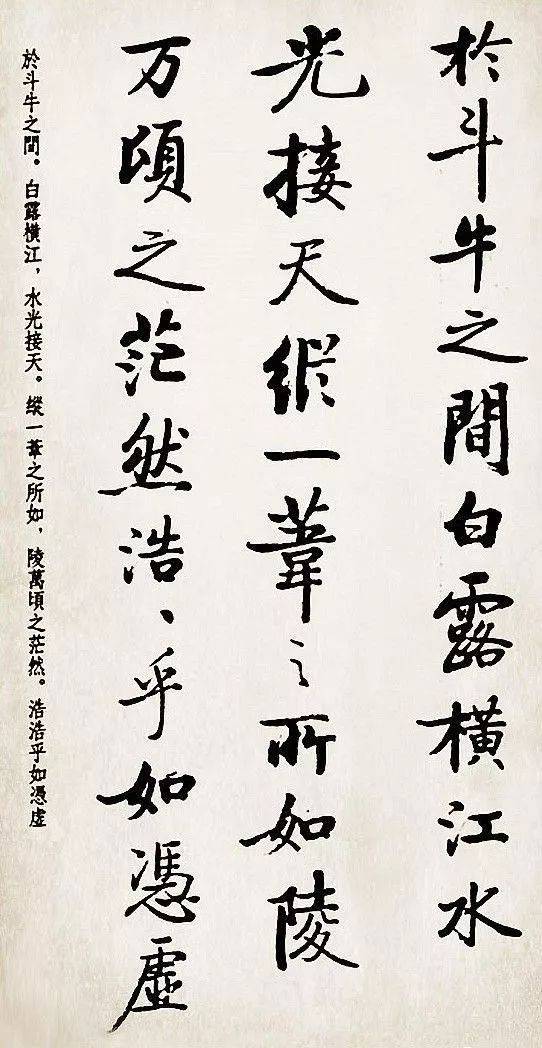 於斗牛之間白露橫江水
光接天縱一葦之所如陵
万頃之茫然浩、乎如馮虛
於斗牛之間。白露橫江，水光接天。縱一葦之所如，陵萬頃之茫然。浩浩乎如馮虛